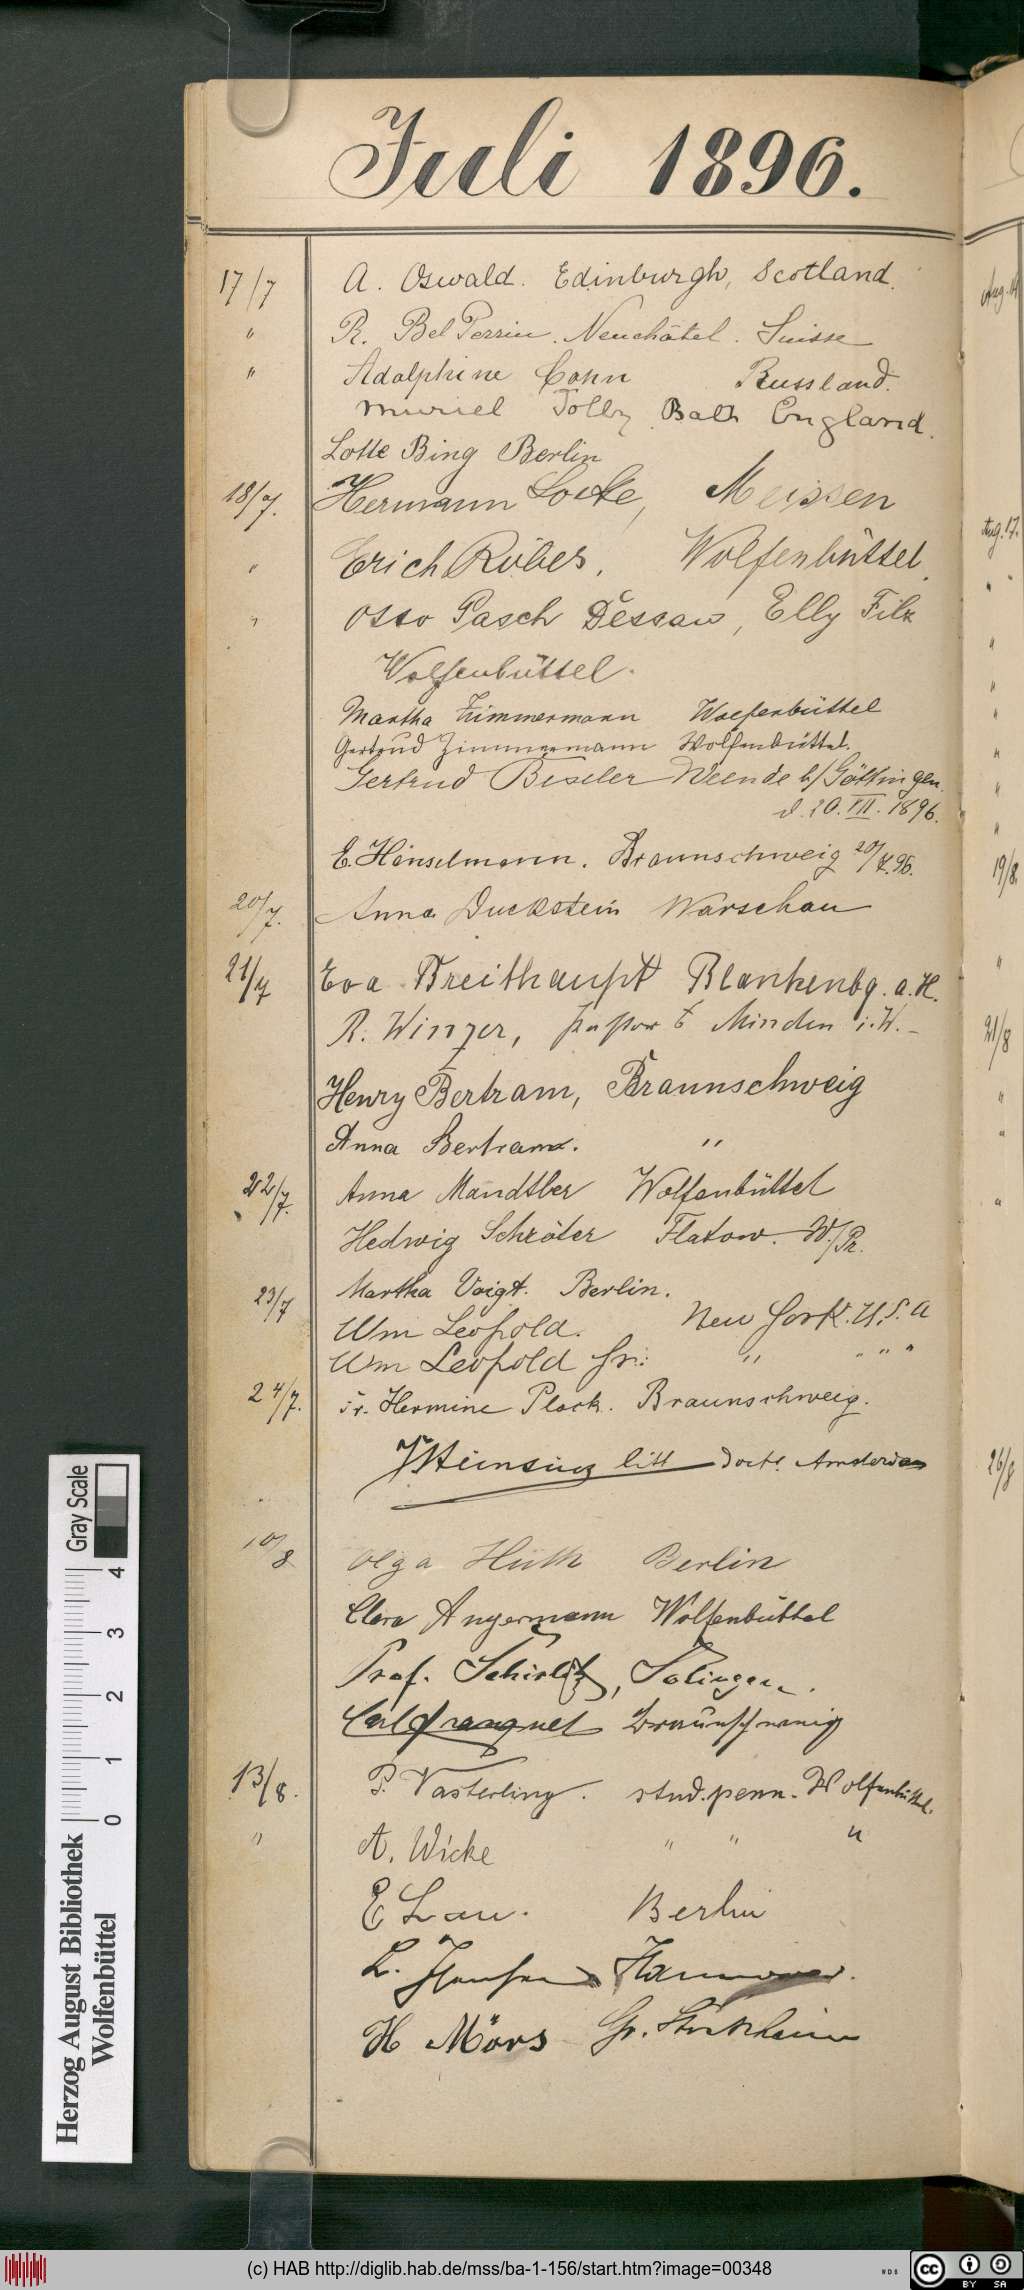 Juli 1896.
17/7 A. Oswald. Edinburgh, Scotland.
" R. Bel Perrin. Neuchâtel. Suisse
" Adolphine Cohn Russland.
Muriel Jolly Bath England.
Lotte Bing Berlin
18/7. Hermann Locke, Meissen
" Erich Rüber, Wolfenbüttel.
" Otto Pasch Dessau, Elly Filz
Wolfenbüttel.
Martha Zimmermann Wolfenbüttel
Gertrud Zimmermann Wolfenbüttel.
Gertrud Beseler Weende b/Göttingen.
d. 20. VII. 1896.
E. Hänselmann. Braunschweig 20/7.96.
20/7. Anna Duckstein Warschau
21/7 Eva Breithaupt Blankenbg. a. H.
R. Winzer, Pastor Minden i. W.
Henry Bertram, Braunschweig
Anna Bertram. "
22/7. Anna Mandtler Wolfenbüttel
Hedwig Schröter Flatow. W./Pr.
23/7 Martha Voigt. Berlin.
Wm Leopold. New York. U.S.A
Wm Leopold Jr.: " " " "
24/7. Fr. Hermine Plock. Braunschweig.
litt Docts Amsterdam
10/8 Olga Hüth Berlin
Clara Angermann Wolfenbüttel
Prof. Schirlitz, Solingen.
Carl Braunschweig
13/8. P. Vasterling. stud. penn. Wolfenbüttel.
" A. Wicke " " "
E Lau. Berlin
L. Hannover.
H Mörs Gr. Stöckheim
Aug. 14
Aug. 17.
"
"
"
"
"
"
"
"
19/8.
"
21/8
"
"
"
26/8
Gray Scale
0 1 2 3 4
Herzog August Bibliothek
Wolfenbüttel
(c) HAB http://diglib.hab.de/mss/ba-1-156/start.htm?image=00348
WDB
cc BY SA